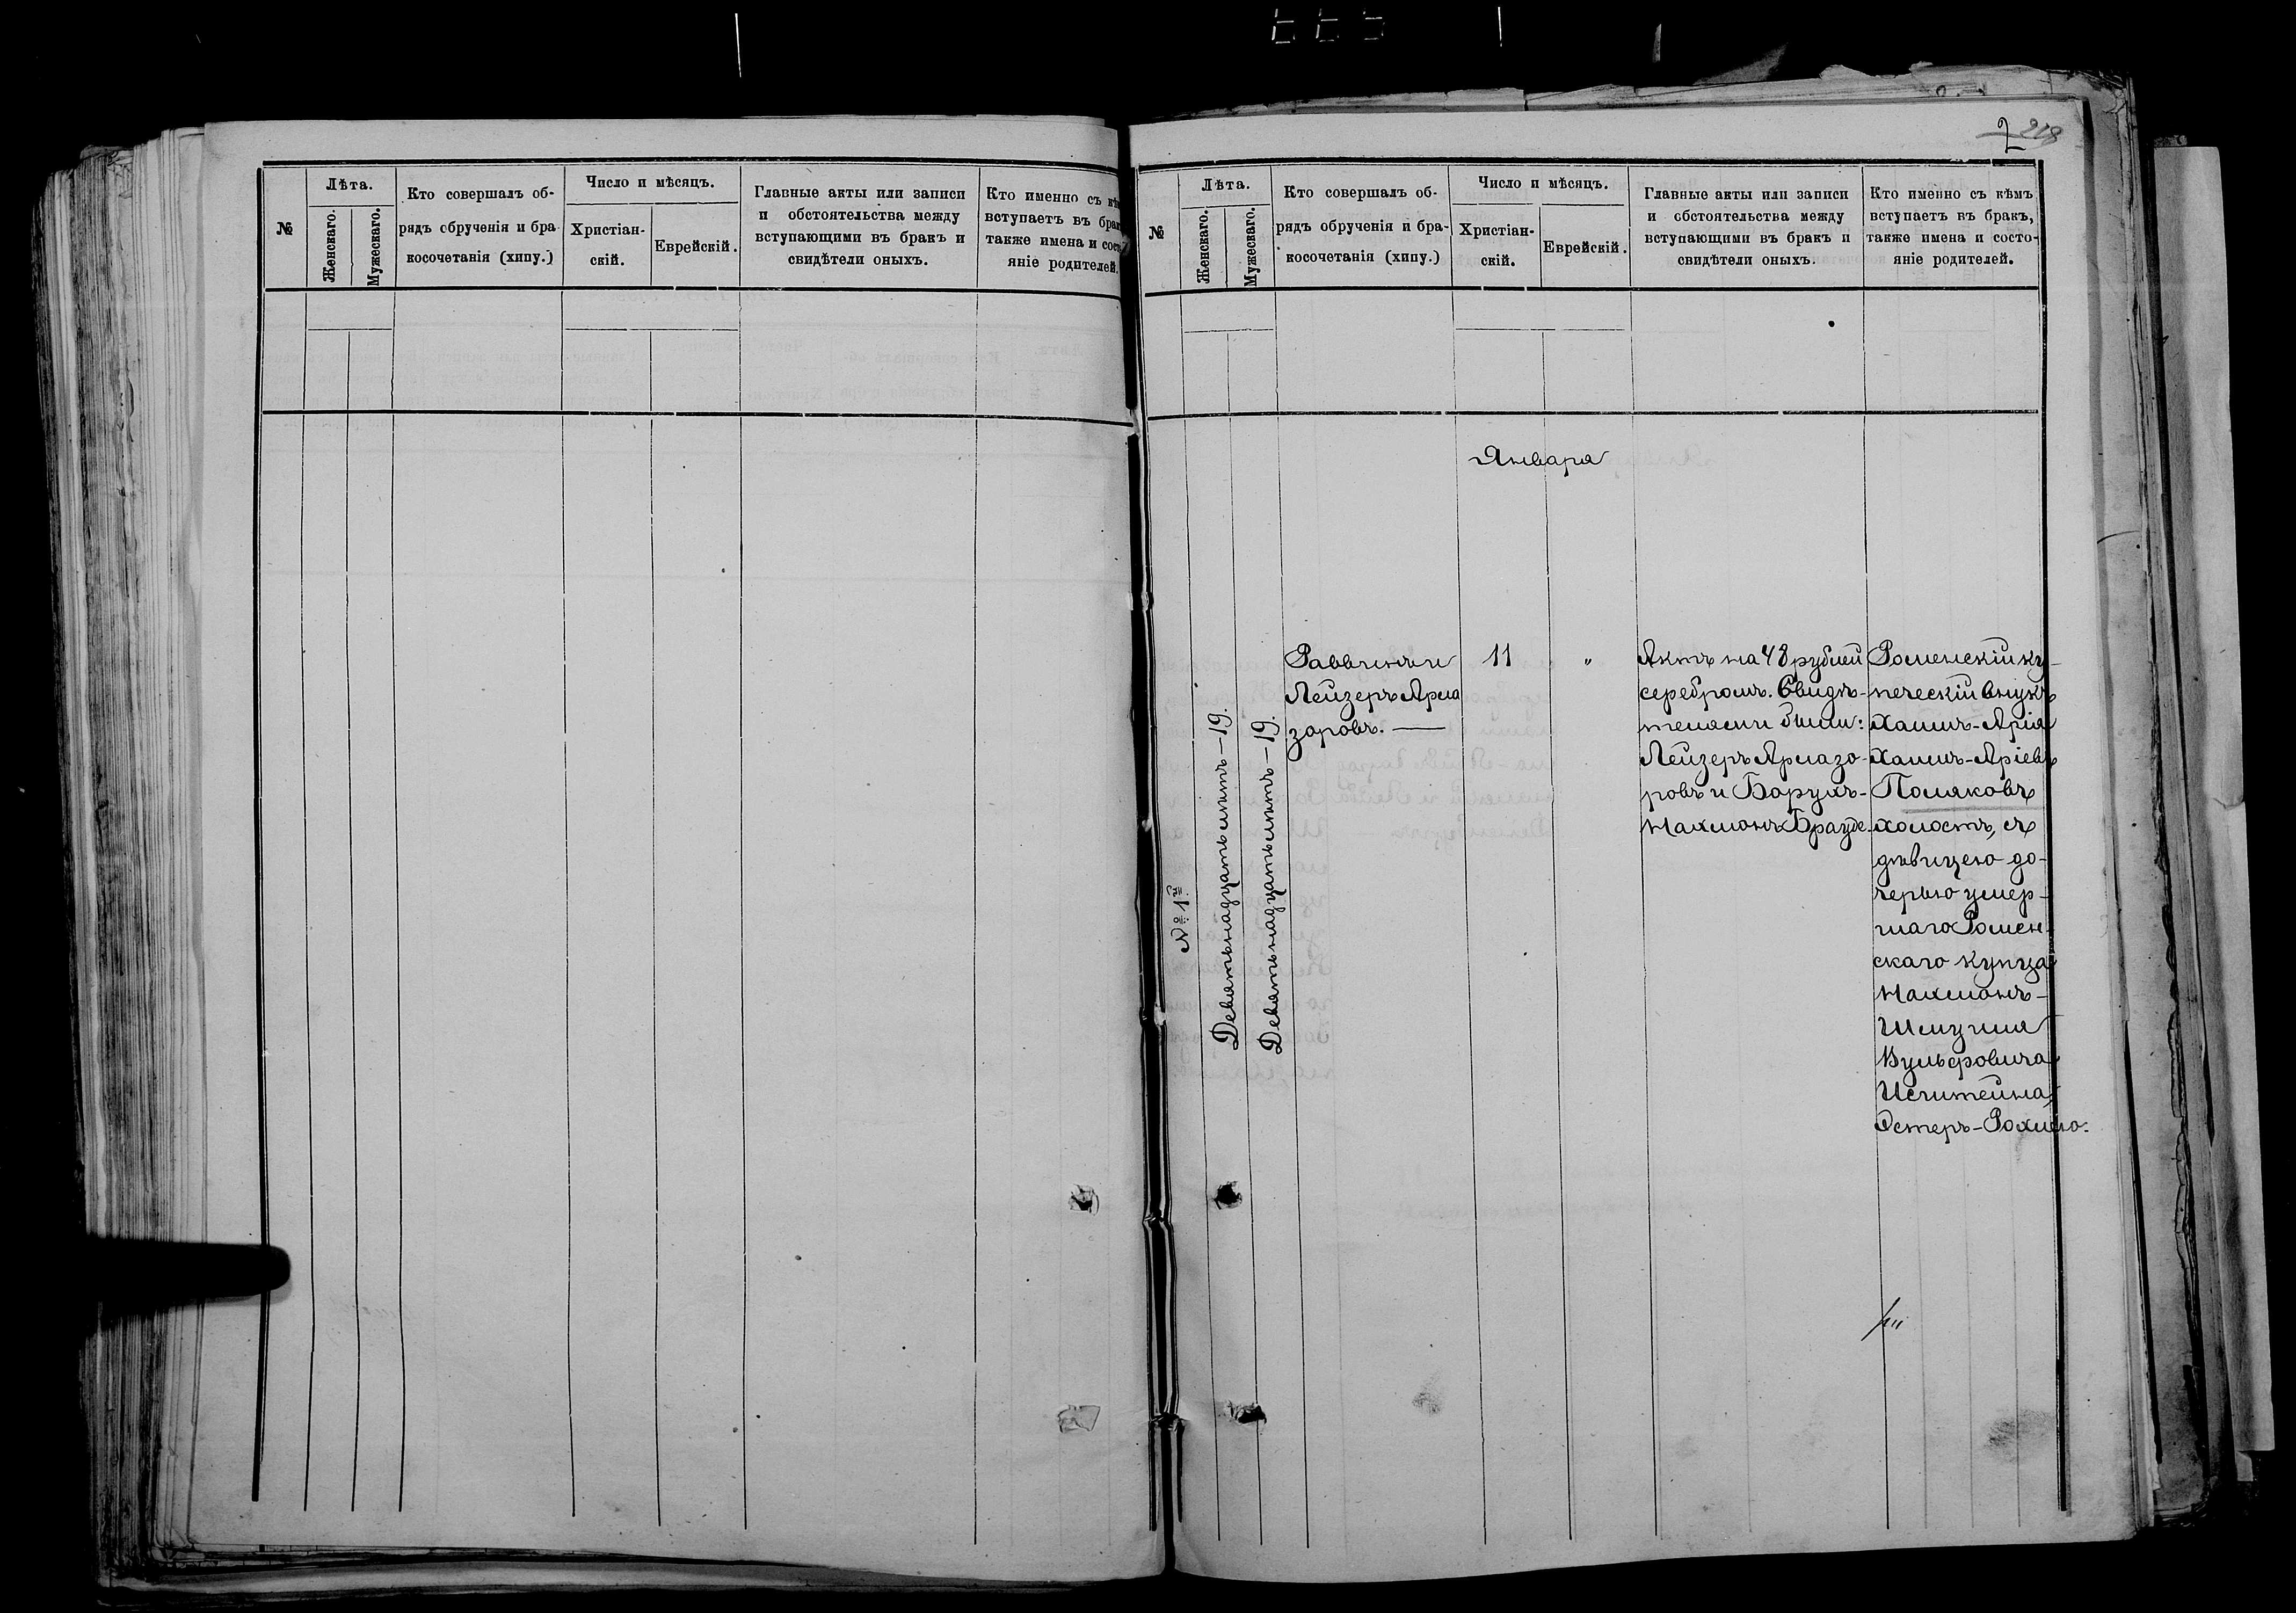 №
Лѣта.
Женскаго.
Мужескаго.
Кто совершалъ об-
рядъ обрученія и бра
косочетанія (хипу.)
Число и мѣсяцъ.
Христіан-
скій.
Еврейскій.
Главные акты или записи
и обстоятельства между
вступающими въ бракъ и
свидѣтели оныхъ.
Кто именно съ
вступаетъ въ
также имена и
яніе родителей.
2 218
№
Лѣта.
Женскаго.
Мужескаго.
Кто совершалъ об-
рядъ обрученія и бра-
косочетанія (хипу.)
Число и мѣсяцъ.
Христіан-
скій.
Еврейскій.
Главные акты или записи
и обстоятельства между
вступающими въ бракъ и
свидѣтели оныхъ.
Кто именно съ кѣмъ
вступаетъ въ бракъ,
также имена и состо-
яніе родителей.
Января
№ 1й
Девятьнадцать лѣтъ – 19.
Девятьнадцать лѣтъ – 19.
Раввинъ и
Лейзеръ Арла
заровъ. —
11
"
Актъ на 48 рублей
серебромъ. Свидѣ-
телями были:
Лейзеръ Арлазо-
ровъ и Борухъ-
Нахманъ Брауде.
Роменскій ку-
печескій внукъ
Хаимъ-Арія
Хаимъ-Аріевъ
Поляковъ
холостъ, съ
дѣвицею до-
черью умер-
шаго Ромен-
скаго купца
Нахманъ-
Шмуиля
Вульфовича
Эстеръ-Рохлею.